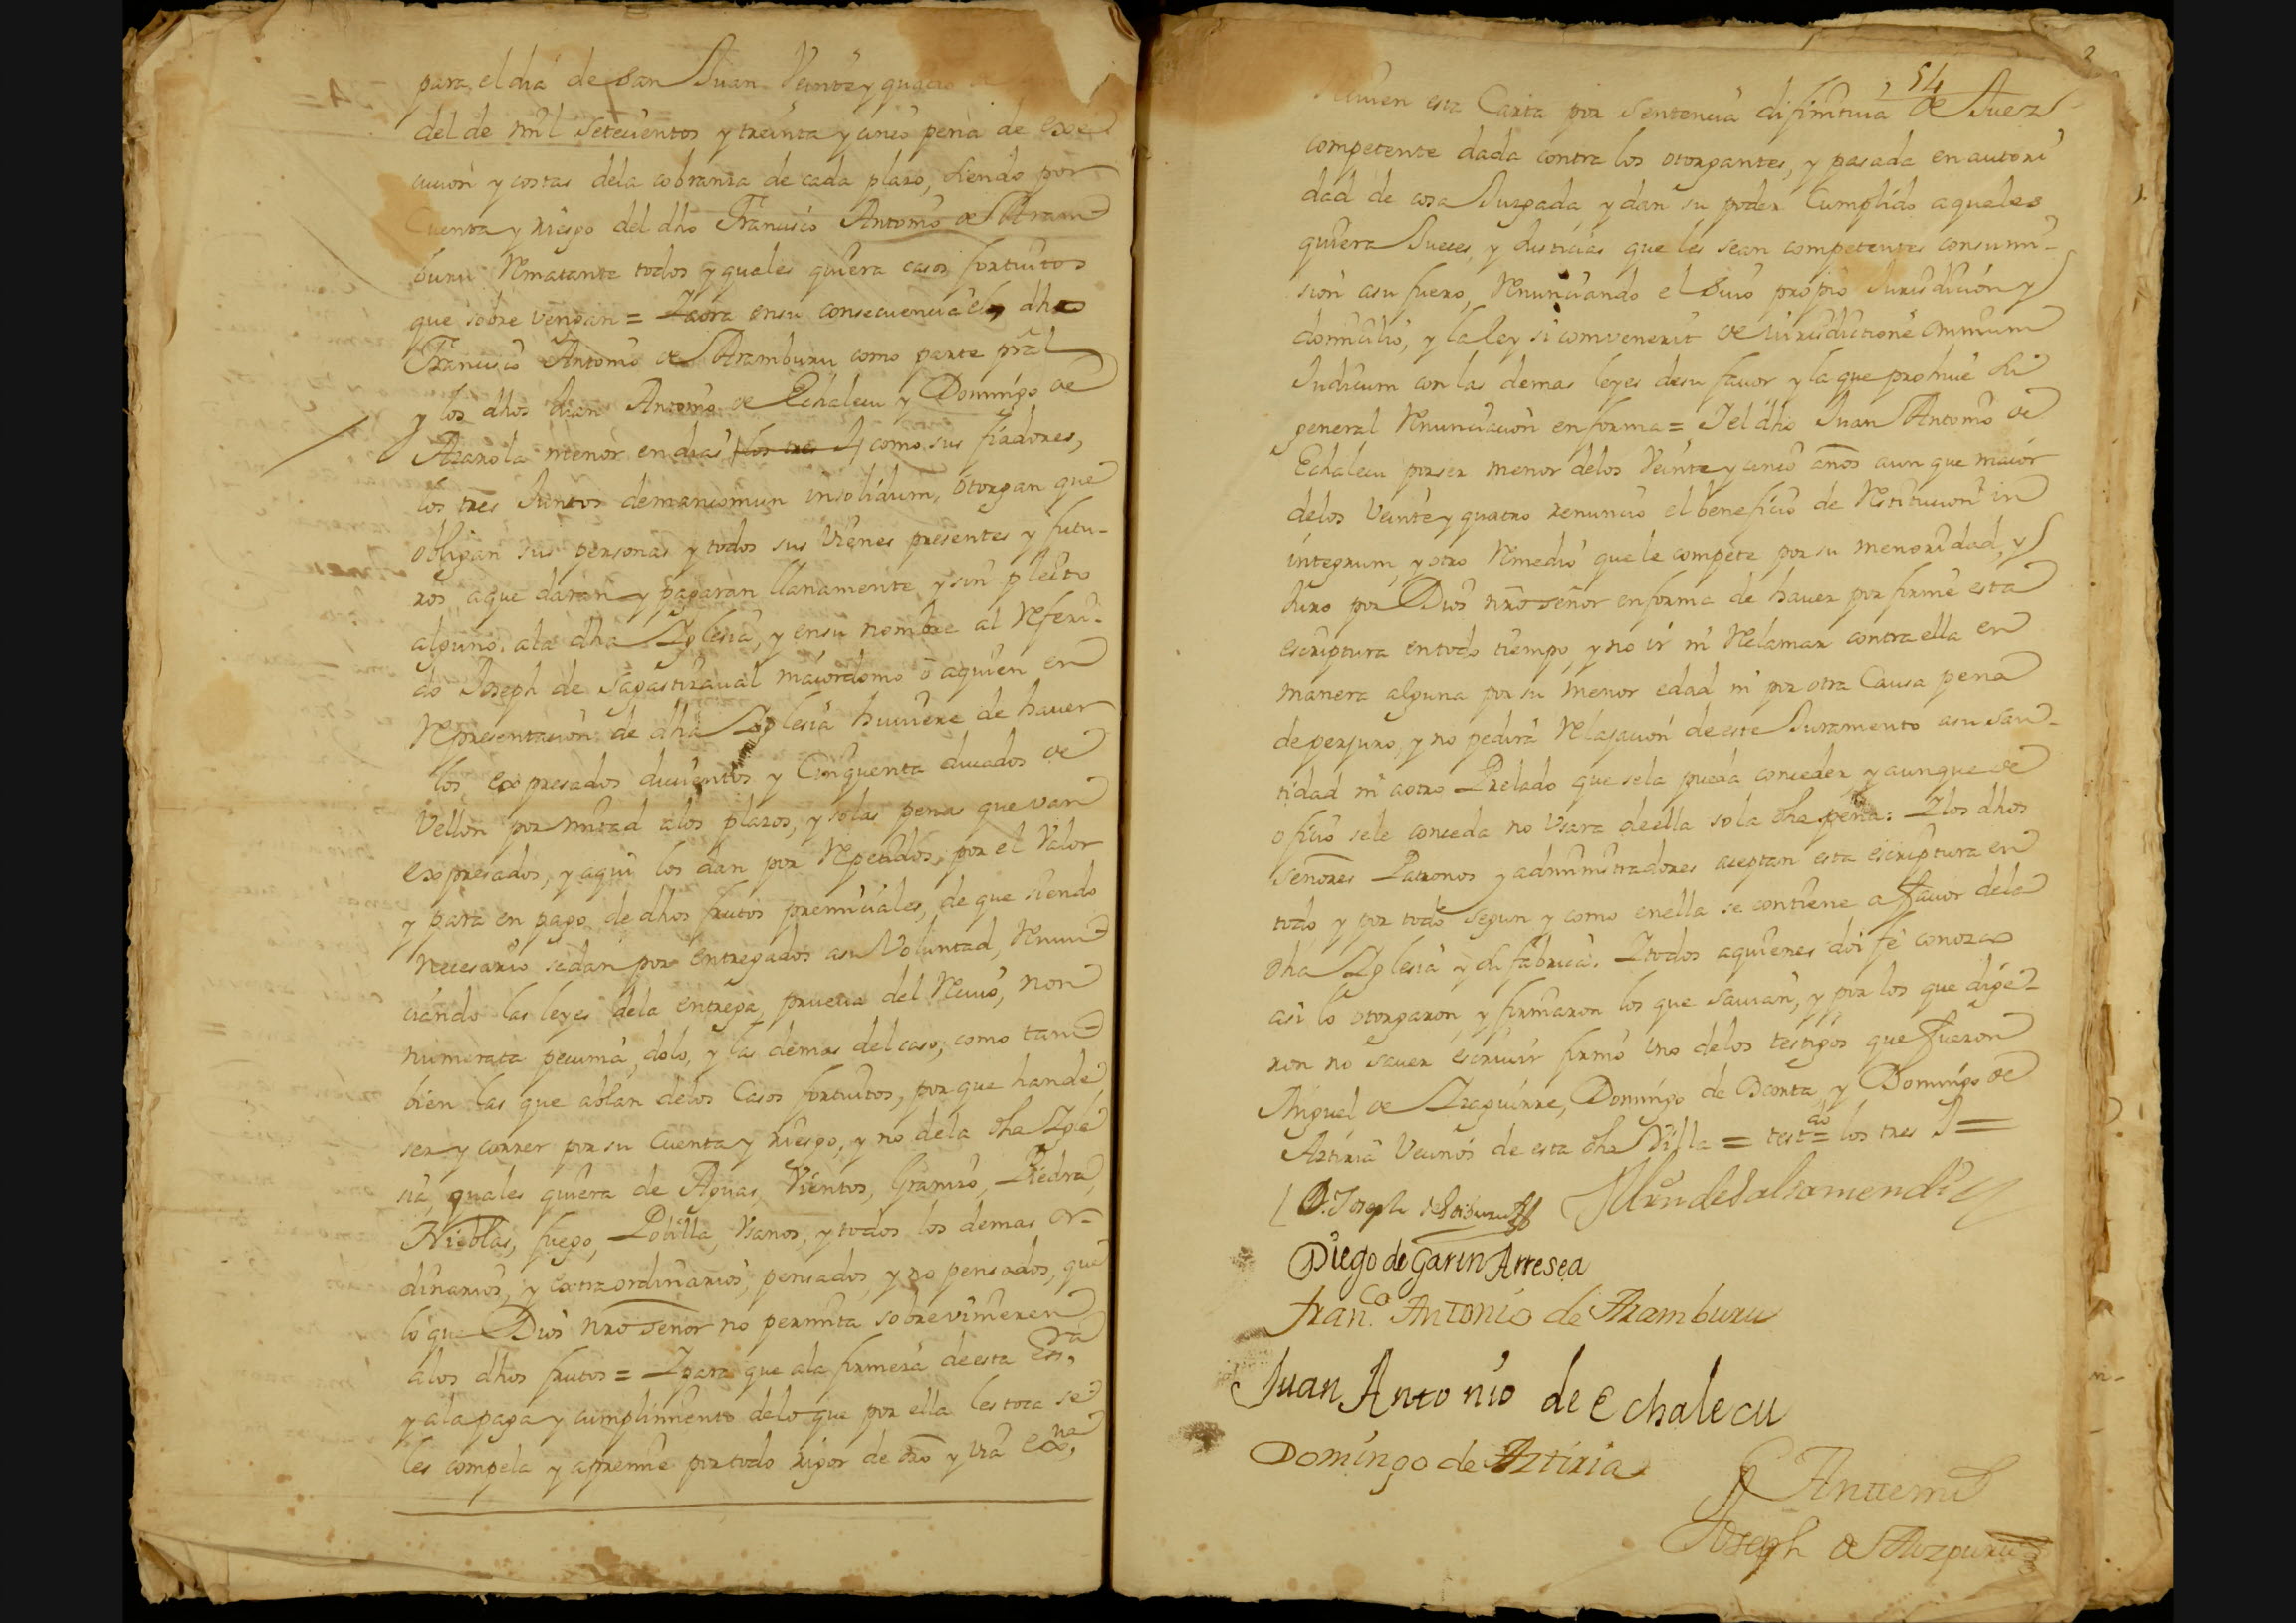 para el dia de San Juan Veinte y quatro
del de mil setecientos y treinta y cinco pena de exe
cucion y costas dela cobranza de cada plazo, siendo por
Cuenta y riesgo del dho Francisco Antonio de Aram
buru Rematante todos y quales quiera casos fortuitos
que sobre vengan = Y aora ensu consecuencia el dho
Francisco Antonio de Aramburu como parte prâl
y los dhos Juan Antonio de Echalecu y Domingo de
Azarola menor en dias los tres como sus fiadores,
los tres Juntos demancomun insolidum, otorgan que
obligan sus personas y todos sus Vienes presentes y futu-
ros, aque daran y pagaran llanamente y sin pleito
alguno, ala dha Yglesia, y ensu nombre al Referi-
do Joseph de Sagastizaval maiordomo o aquien en
Representacion de dha Yglesia huuiere de hauer
los expresados ducientos y Cinquenta ducados de
Vellon por mitad alos plazos, y solas penas que van
expresados, y aqui los dan por Repetidos, por el Valor
y para en pago de dhos frutos premiciales, de que siendo
necesario sedan por entregados asu Voluntad, Renun
ciando las leyes dela entrega, prueua del Reciuo, non
numerata pecunia, dolo, y las demas del caso, como tan
bien las que ablan delos Casos fortuitos, porque hande
ser y correr por su Cuenta y riesgo, y no dela dha Ygle
sia, quales quiera de Aguas, Vientos, Granizo, Piedra,
Nieblas, fuego, Polilla, Vsanos, y todos los demas or-
dinarios, y extraordinarios, pensados, y no pensados, que
lo que Dios nro señor no permita sobrevinieren
alos dhos frutos = Y para que ala firmeza de esta Essra,
y ala paga y cumplimiento delo que por ella les toca se
les compela y apremie portodo rigor de dro y via exna,
54
esta Carta por Sentencia difinitiua de Juez
competente dada contra los otorgantes, y pasada en autori
dad de cosa Juzgada y dan su poder Cumplido aquales
quiera Jueces, y Justicias que les sean competentes consumi-
sion asu fuero, Renunciando el suio propio Jurisdicion y
domicilio, y la ley si comvenerit de iurisdictione omnium
Judicum con las demas leyes desu fauor y la que prohiue la
general Renunciacion en forma = Y el dho Juan Antonio de
Echalecu por ser menor delos Veinte y cinco años aun que maior
delos Veinte y quatro renuncio el beneficio de Restitucion in
integrum, y otro Remedio que le compete por su menoridad, y
Juro por Dios nro señor en forma de hauer por firme esta
escriptura entodo tiempo, y no ir ni Reclamar contra ella en
manera alguna por su menor edad ni por otra Causa pena
de perjuro, y no pedira Relaxacion de este Juramento asu San-
tidad ni aotro Prelado que sela pueda conceder y aunque de
oficio sele conceda no Vsara de ella sola dha pena: Y los dhos
Señores Patronos y administradores aceptan esta escriptura en
todo y por todo segun y como enella se contiene a fauor dela
dha Yglesia y su fabrica. Y todos aquienes doi fe conozco
asi lo otorgaron, y firmaron los que sauian, y por los que dige-
ron no sauer escriuir firmo Vno delos testigos que fueron
Miguel de Yzaguirre, Domingo de Beorta, y Domingo de
Aztiria Vecinos de esta dha Villa = testdo = los tres =
D. Joseph
Diego de Garin Arresea
Franco Antonio de Aramburu
Juan Antonio de Echalecu
Domingo de Aztiria
Anttemi
Joseph de Aizpuru